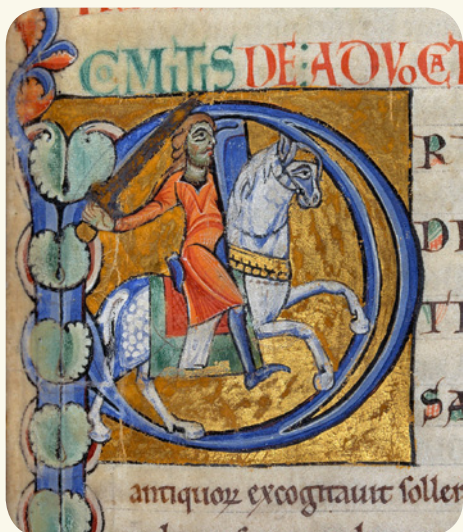 COMITIS DE ADVOCAT
R
D
TI
SA
antiquoꝝ excogitauit soller